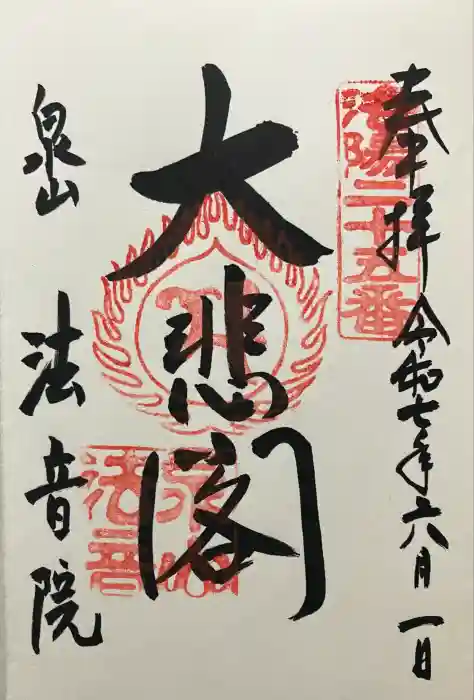 奉拝 令和七年六月一日
洛陽二十五番
大悲閣
泉山 法音院
泉山
法音